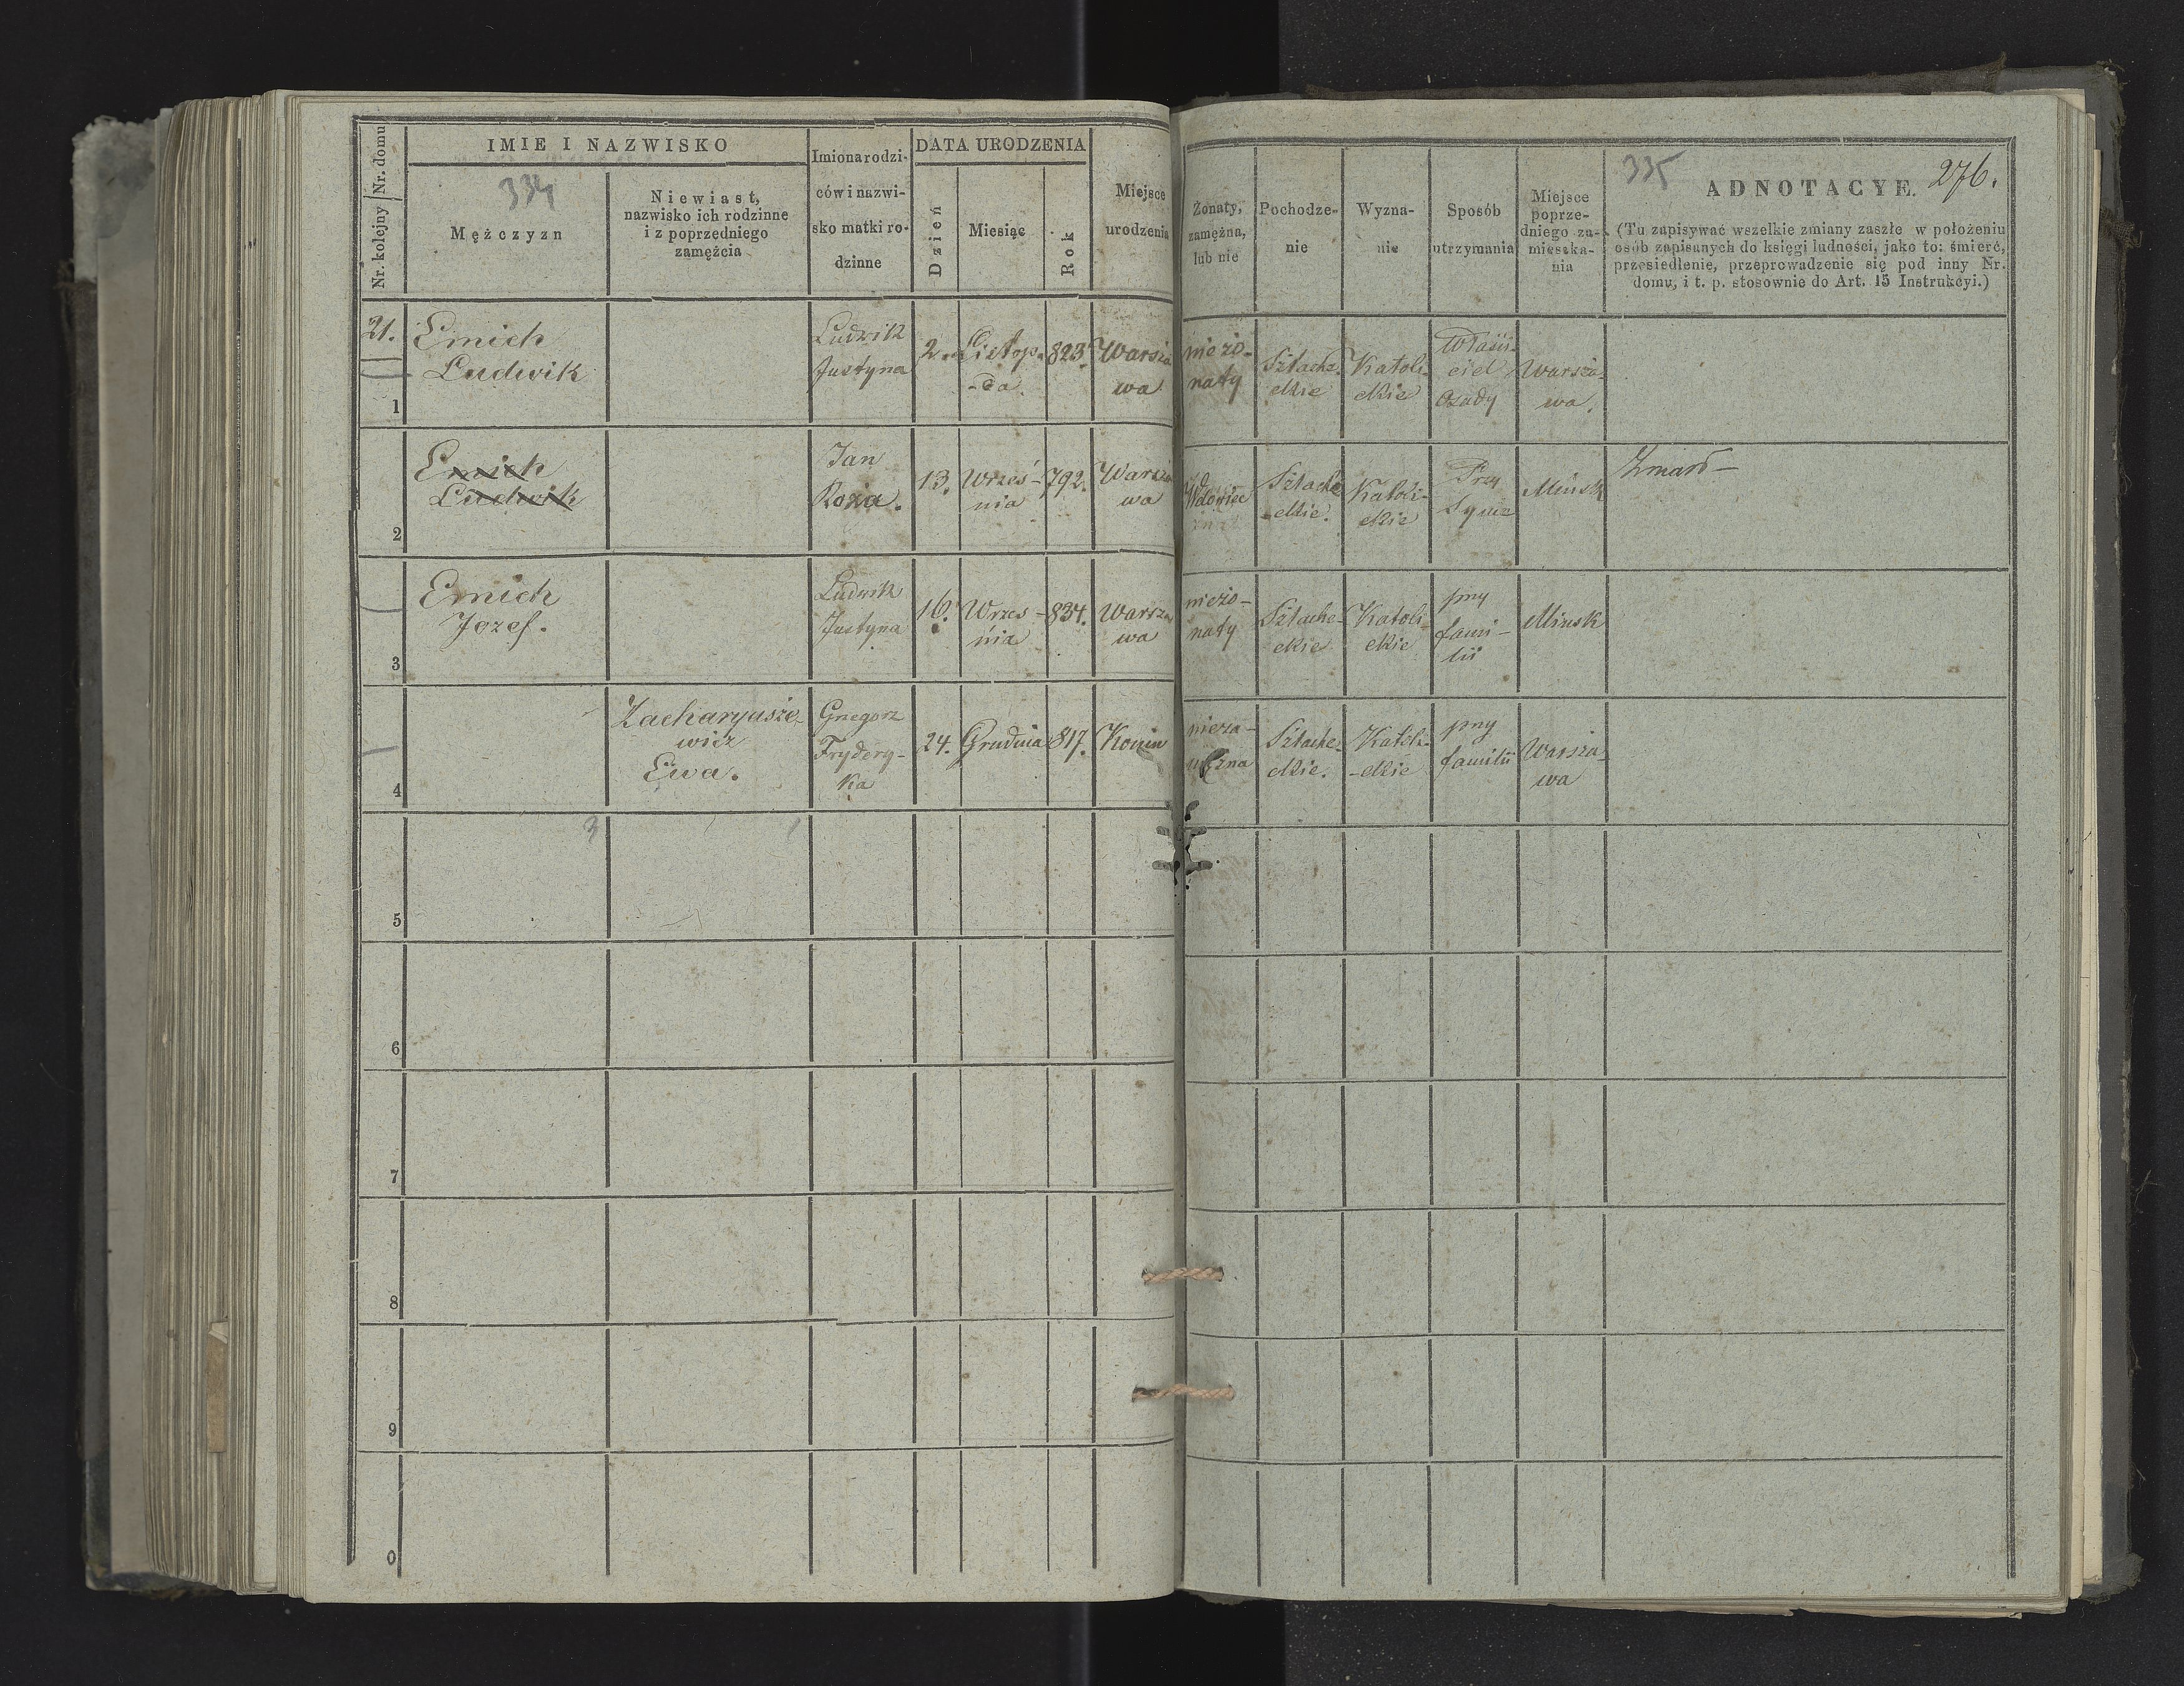 Nr. kolejny | Nr. domu
IMIE I NAZWISKO
334
Mężczyzn
Niewiast,
nazwisko ich rodzinne
i z poprzedniego
zamężcia
Imiona rodzi-
ców i nazwi-
sko matki ro-
dzinne
DATA URODZENIA
Dzień
Miesiąc
Rok
Miejsce
urodzenia
Żonaty,
zamężna,
lub nie
Pochodze-
nie
Wyzna-
nie
Sposób
utrzymania
Miejsce
poprze-
dniego za-
mieszka-
nia
335
ADNOTACYE.
276.
(Tu zapisywać wszelkie zmiany zaszłe w położeniu
osób zapisanych do księgi ludności, jako to: śmierć,
przesiedlenie, przeprowadzenie się pod inny Nr.
domu, i t. p. stosownie do Art. 15 Instrukcyi.)
21.
1
Emich
Ludwik
Ludwik
Justyna
2.
Listopa-
-da.
823.
Warsza
wa
nieżo-
naty
Szlache-
ckie
Katoli-
ckie
Właści-
ciel
Osady
Warsza-
wa.
2
Emich
Ludwik
Jan
Roza.
13.
Wrześ-
nia
792.
Warsza
wa
Wdowiec
Szlache
-ckie.
Katoli-
ckie
Przy
Synie
Minsk
Zmarł-
3
Emich
Jozef.
Ludwik
Justyna
16.
Wrzes-
nia
834.
Warsza
wa
nieżo-
naty
Szlache-
ckie
Katoli
ckie
przy
fami-
lii
Minsk
4
Zacharyusze-
wicz
Ewa.
Grzegorz
Frydery-
ka
24.
Grudnia
817.
Konin
nieza-
mężna
Szlache-
ckie.
Katoli-
-ckie
przy
familii
Warsza-
wa
3
5
6
7
8
9
0